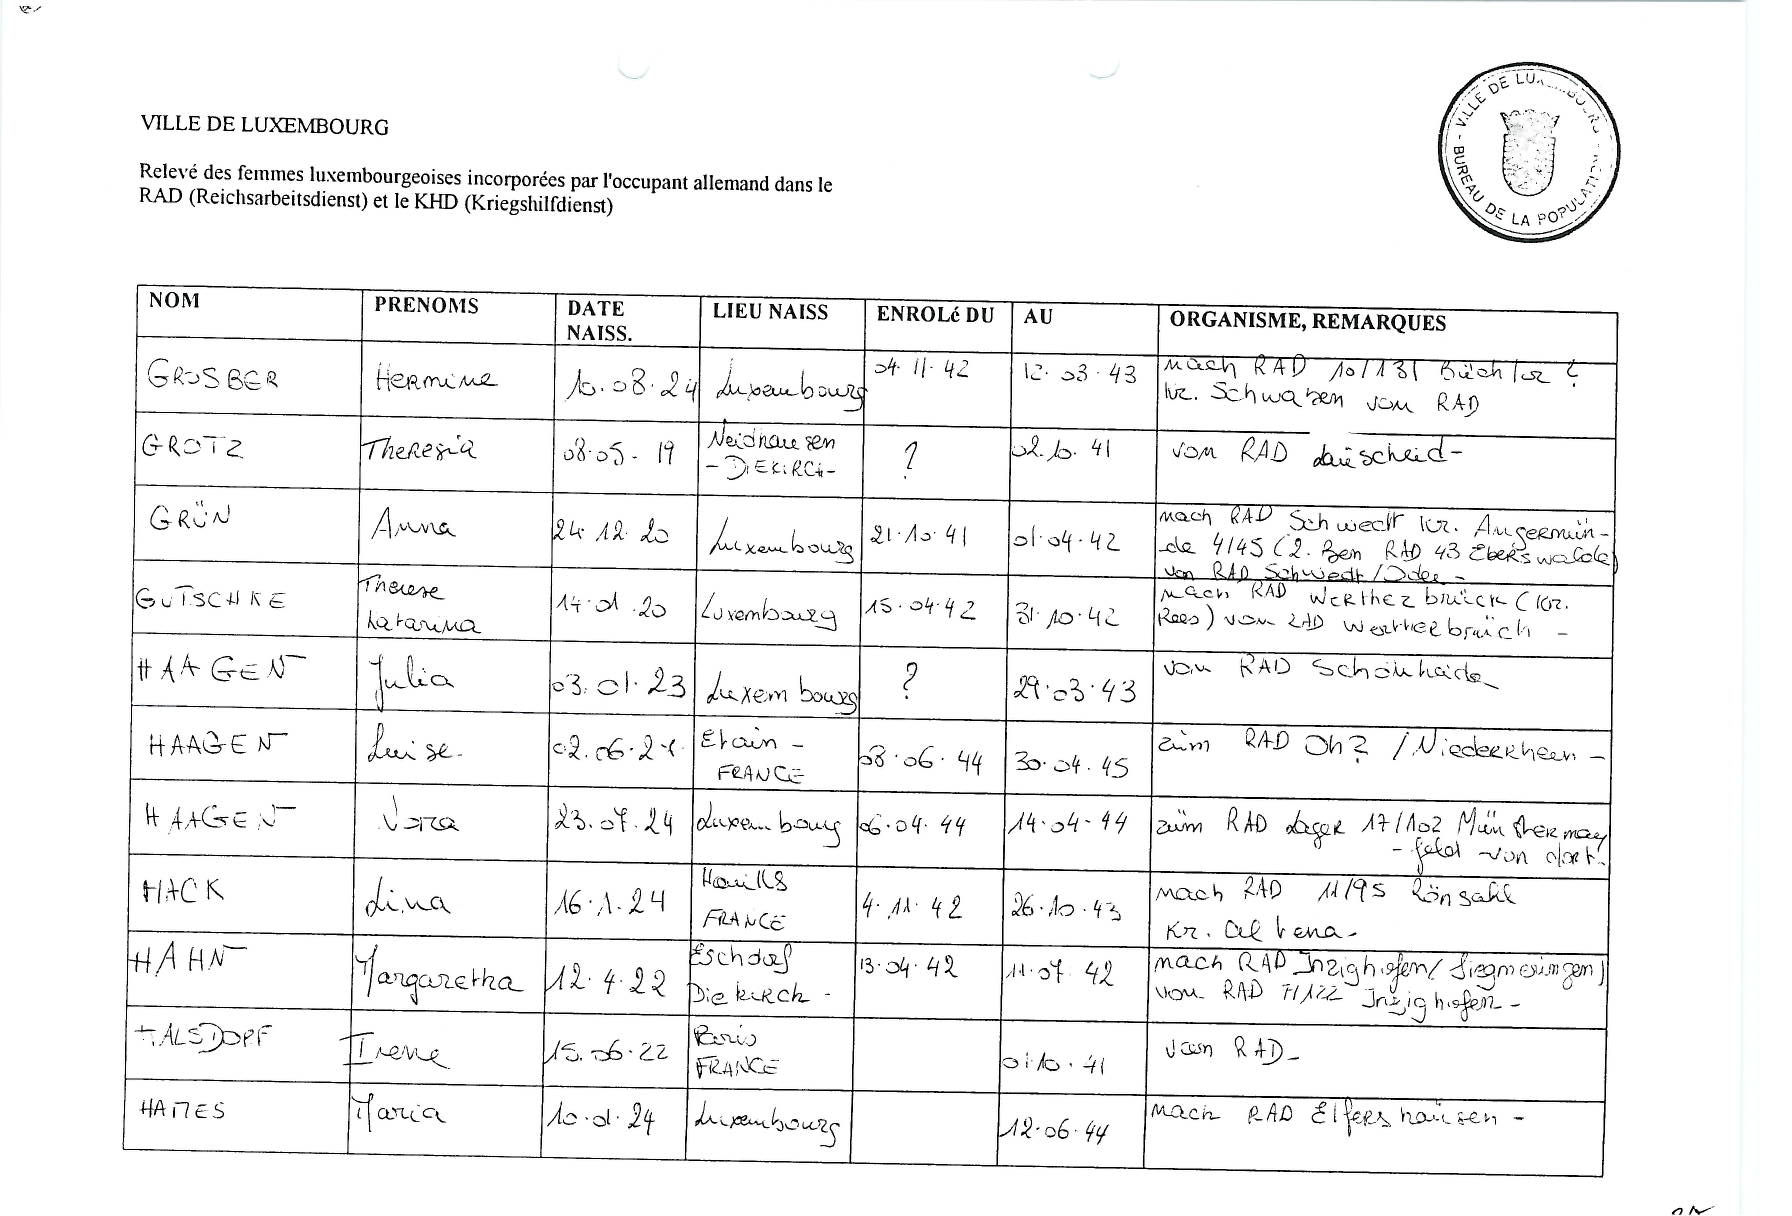 VILLE DE LUXEMBOURG
VILLE DE LUXEMBOURG
BUREAU DE LA POPULATION
Relevé des femmes luxembourgeoises incorporées par l'occupant allemand dans le
RAD (Reichsarbeitsdienst) et le KHD (Kriegshilfdienst)
NOM PRENOMS DATE NAISS. LIEU NAISS ENROLé DU AU ORGANISME, REMARQUES
GROSBER Hermine 10.08.24 Luxembourg 04.11.42 12.03.43 nach RAD 10/131 ?
kr. Schwaben vom RAD
GROTZ Theresia 08.05.19 Neidhausen ? 02.10.41 vom RAD
-DIEKIRCH-
GRÜN Anna 24.12.20 Luxembourg 21.10.41 01.04.42 nach RAD Schwedt kr. Angermün-
de 4/45 (2. Bem RAD 43 Eberswalde)
von RAD Schwedt/Oder-
GUTSCHKE Therese 14.01.20 Luxembourg 15.04.42 31.10.42 nach RAD Wertherbrück (Kr.
Katarina Rees) vom RAD Wertherbrück -
HAAGEN Julia 03.01.23 Luxembourg ? 29.03.43 vom RAD Schönheide
HAAGEN Luise. Etain - 08.06.44 30.04.45 zum RAD Oh? /Niederrhein-
FRANCE
HAAGEN 23.07.24 Luxembourg 06.04.44 14.04.44 zum RAD Lager 17/102
-feld von dort.
HACK Lina 16.1.24 4.11.42 26.10.43 nach RAD 11/95 Rönsahl
FRANCE Kr. Altena-
HAHN Margaretha 12.4.22 Eschdorf 13.04.42 11.07.42 nach RAD Inzighofen/Siegmeringen)
Diekirch - vom RAD 7/122 Inzighofen-
HALSDORF Irene 15.06.22 Paris 01.10.41 vom RAD-
FRANCE
HAMES Maria 10.01.24 Luxembourg 12.06.44 nach RAD Elfershausen-